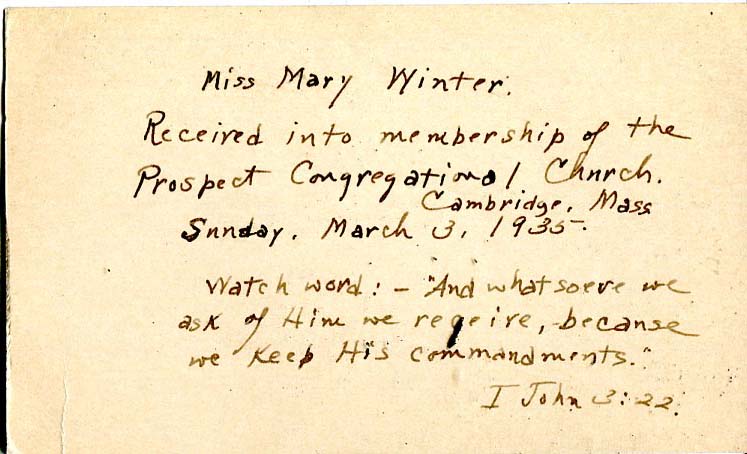 Miss Mary Winter.
Received into membership of the
Prospect Congregational Church.
Cambridge, Mass
Sunday, March 3, 1935.
Watch word: - "And whatsoeve we
ask of Him we receive, because
we keep His commandments."
I John 3:22.